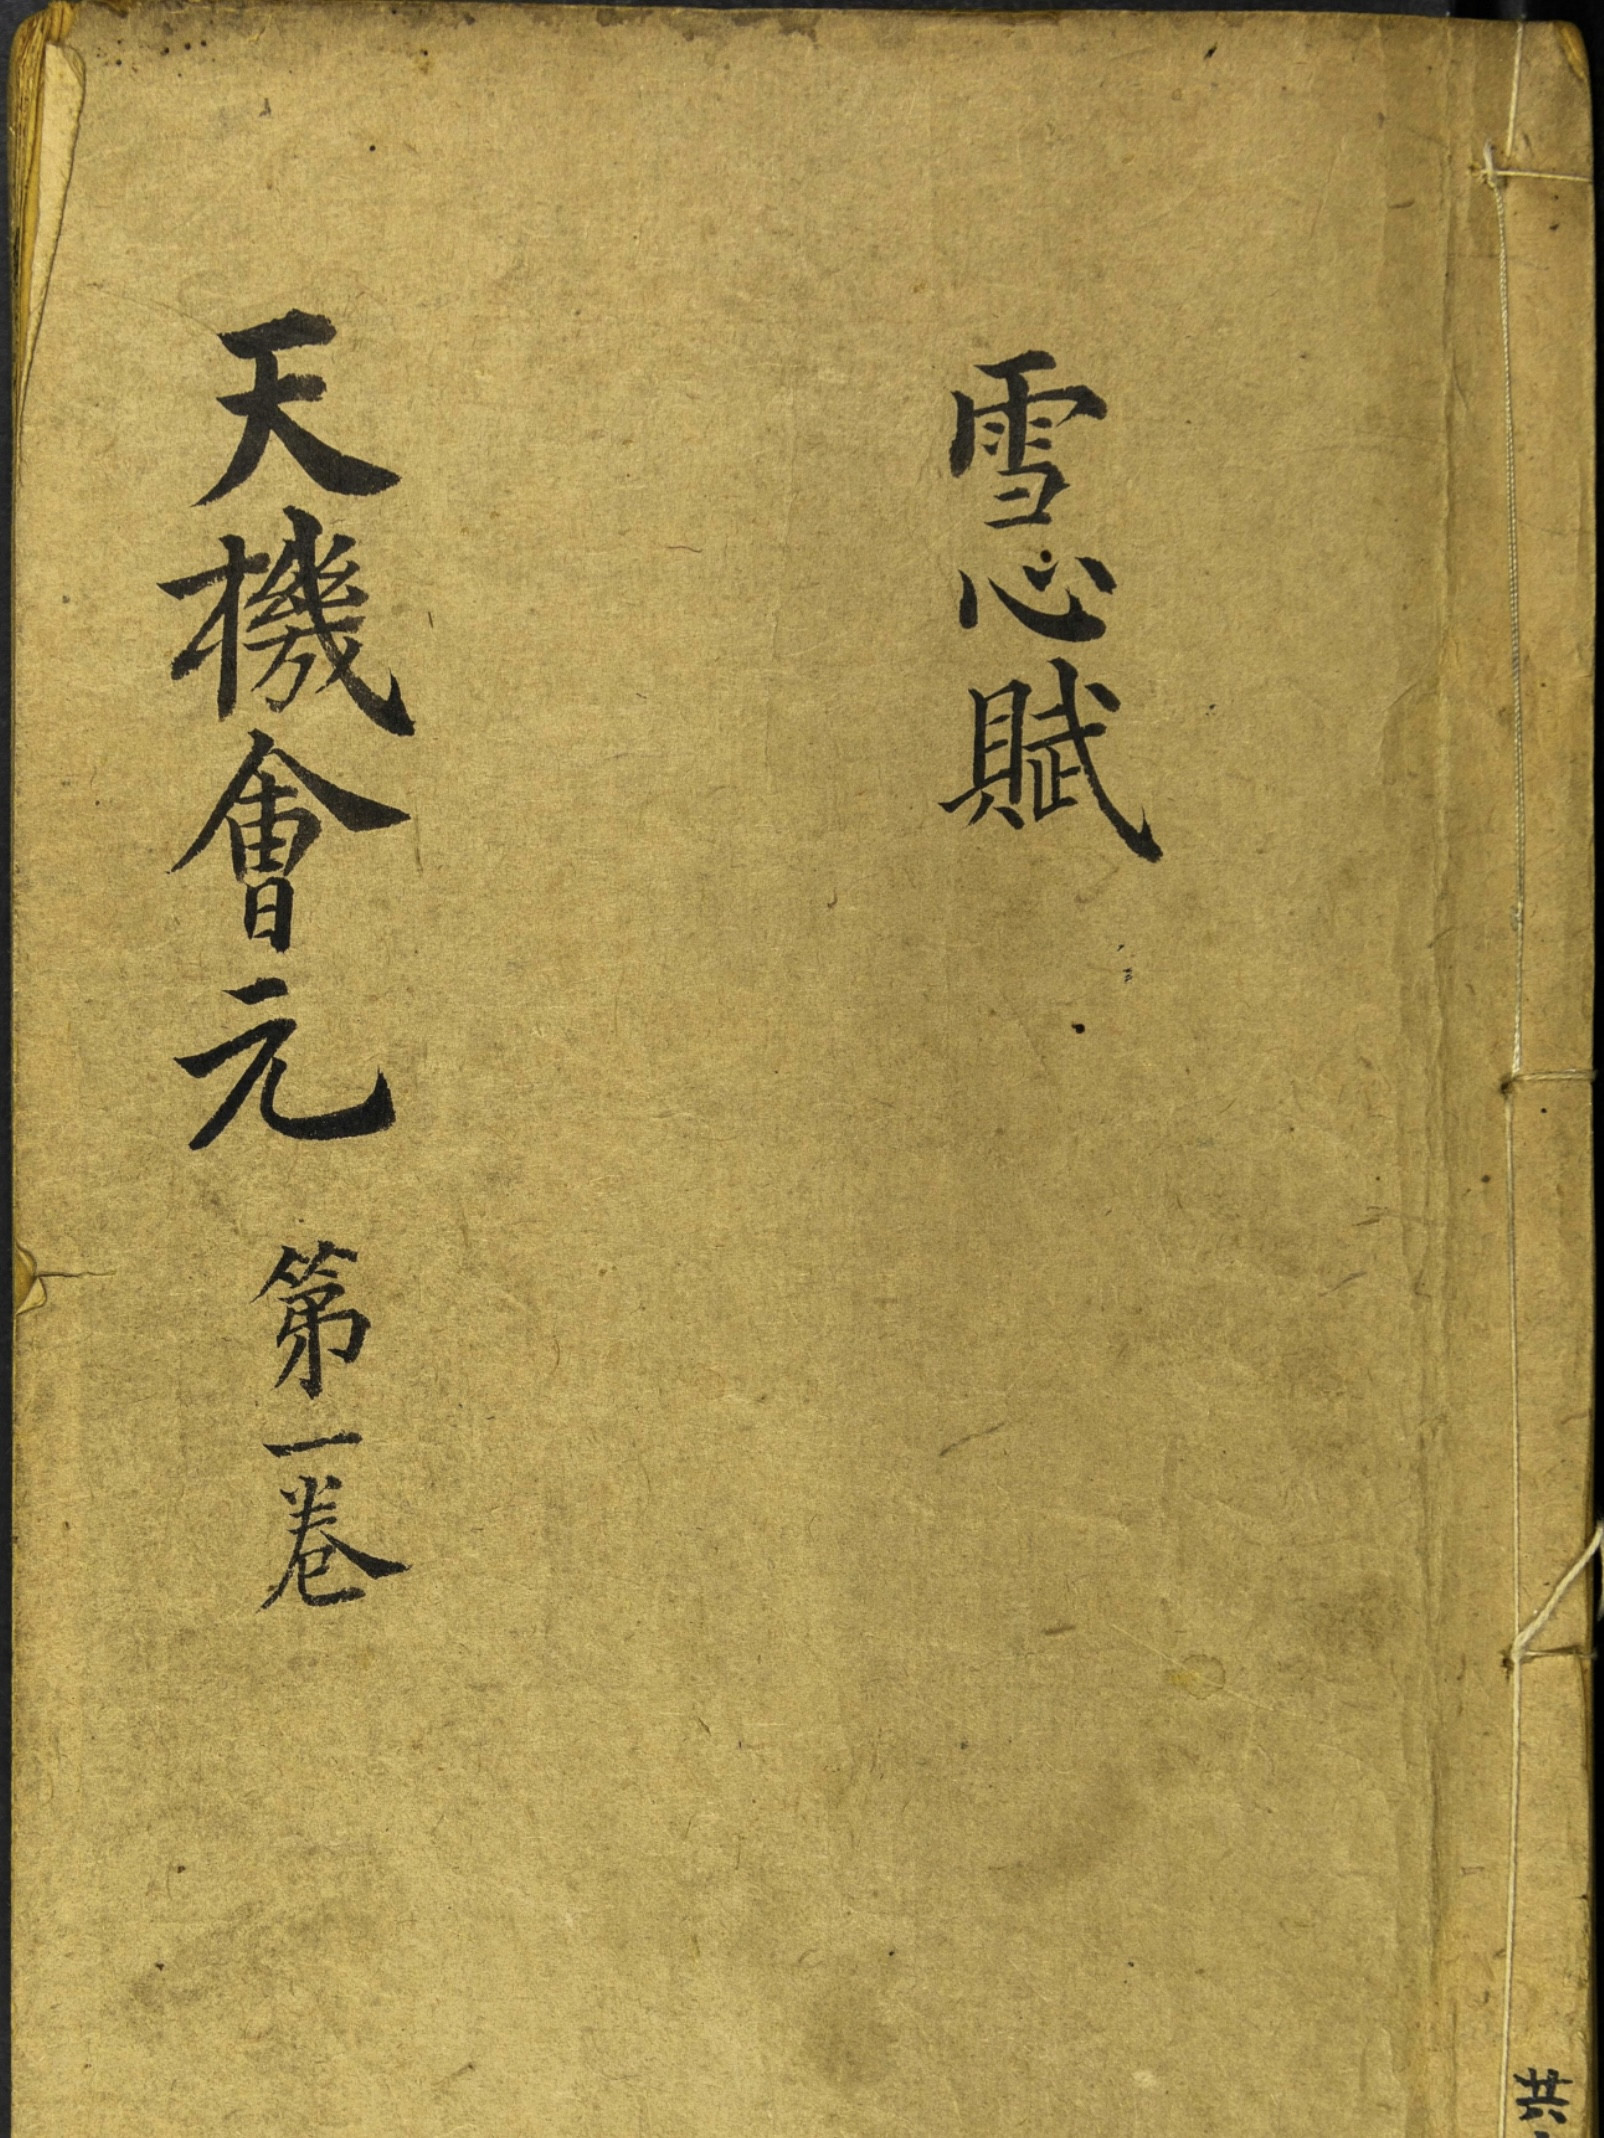 共
雪心賦
天機會元 第一卷